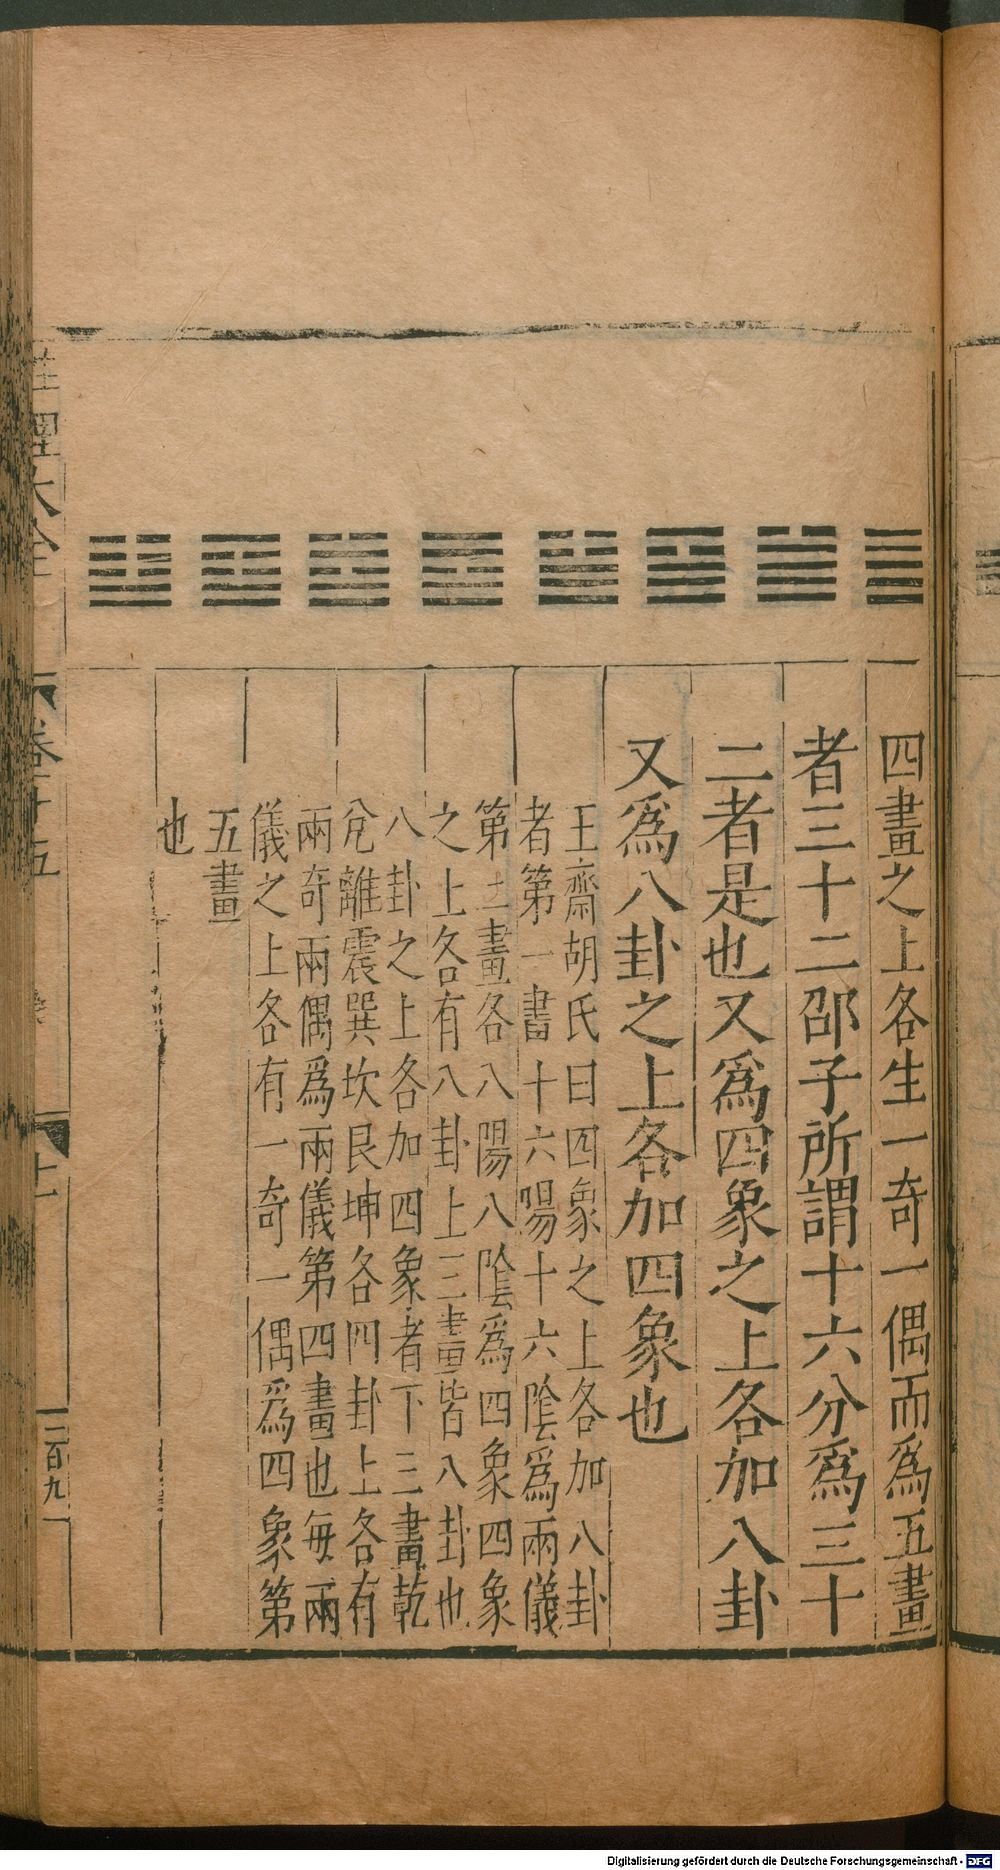 四畫之上各生一奇一偶而爲五畫
者三十二邵子所謂十六分爲三十
二者是也又爲四象之上各加八卦
又爲八卦之上各加四象也
王齋胡氏曰四象之上各加八卦
者第一畫十六陽十六陰爲兩儀
第二畫各八陽八陰爲四象四象
之上各有八卦上三畫皆八卦也
八卦之上各加四象者下三畫乾
兊離震巽坎艮坤各四卦上各有
兩奇兩偶爲兩儀第四畫也每兩
儀之上各有一奇一偶爲四象第
五畫
也
性理大全
卷十五
十一
二百九
Digitalisierung gefördert durch die Deutsche Forschungsgemeinschaft - DFG